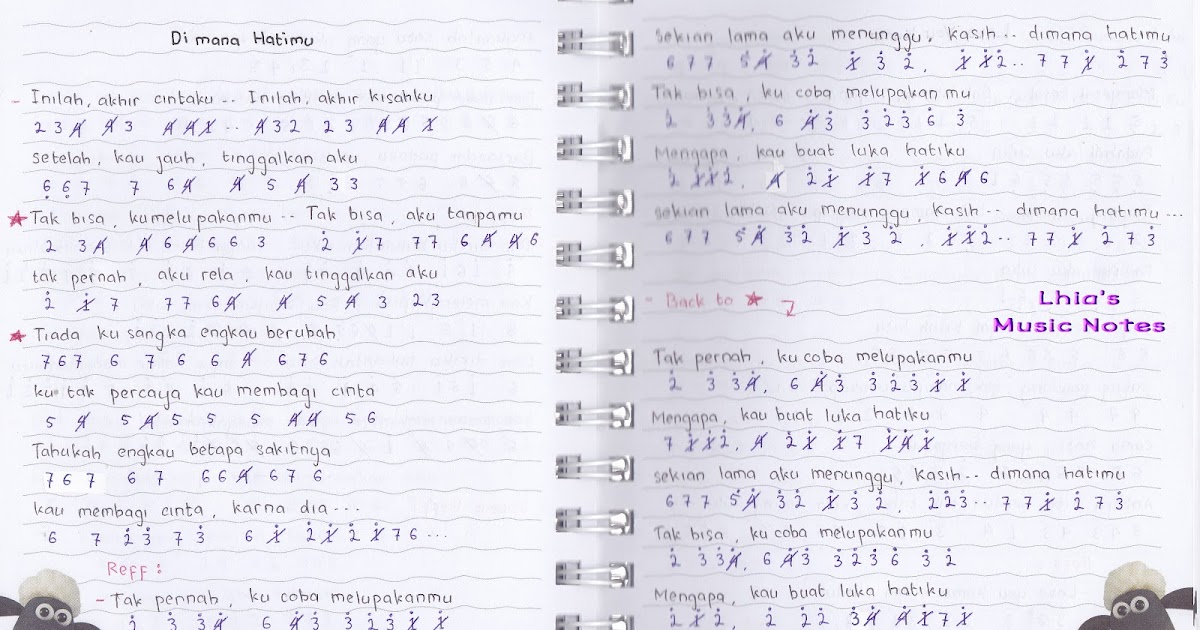 Di mana Hatimu
- Inilah, akhir cintaku .. Inilah, akhir kisahku
2 3 4 4 3 4 4 1 .. 4 3 2 2 3 4 4 1
setelah, kau jauh, tinggalkan aku
6 6 7 7 6 4 4 5 4 3 3
★ Tak bisa, kumelupakanmu .. Tak bisa, aku tanpamu
2 3 4 4 6 4 6 6 3 2 1 7 7 7 6 4 4 6
tak pernah, aku rela, kau tinggalkan aku
2 1 7 7 7 6 4 4 5 4 3 2 3
★ Tiada ku sangka engkau berubah
7 6 7 6 7 6 6 4 6 7 6
ku tak percaya kau membagi cinta
5 4 5 4 5 5 5 4 4 5 6
Tahukah engkau betapa sakitnya
7 6 7 6 7 6 6 4 6 7 6
kau membagi cinta, karna dia ...
6 7 2 3 7 3 6 1 2 1 2 1 7 6 ...
Reff :
- Tak pennah, ku coba melupakanmu
2 3 3 4 6 4 3 3 2 3 1 1
sekian lama aku menunggu, kasih .. dimana hatimu
6 7 7 5 4 3 2 1 3 2, 1 1 2 .. 7 7 1 2 7 3
Tak bisa, ku coba melupakan mu
2 3 3 4, 6 4 3 3 2 3 6 3
Mengapa, kau buat luka hatiku
2 1 1 2, 4 2 1 1 7 1 6 4 6
sekian lama aku menunggu, kasih .. dimana hatimu ...
6 7 7 5 4 3 2 1 3 2, 1 1 2 .. 7 7 1 2 7 3
- Back to ★
Lhia's
Music Notes
Tak pernah, ku coba melupakanmu
2 3 3 4, 6 4 3 3 2 3 1 1
Mengapa, kau buat luka hatiku
7 1 1 2, 4 2 1 1 7 1 4 1
sekian lama aku menunggu, kasih .. dimana hatimu
6 7 7 5 4 3 2 1 3 2, 2 2 3 .. 7 7 1 2 7 3
Tak bisa, ku coba melupakanmu
2 3 3 4, 6 4 3 3 2 3 6 3 2
Mengapa, kau buat luka hatiku
2 1 2, 2 2 2 3 4 4 1 7 1